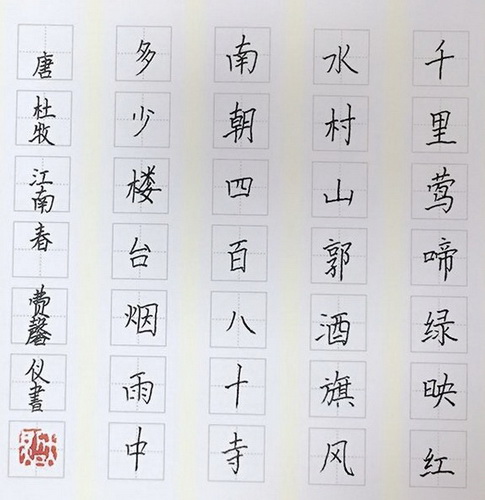 千里莺啼绿映红
水村山郭酒旗风
南朝四百八十寺
多少楼台烟雨中
唐杜牧江南春费馨仪書